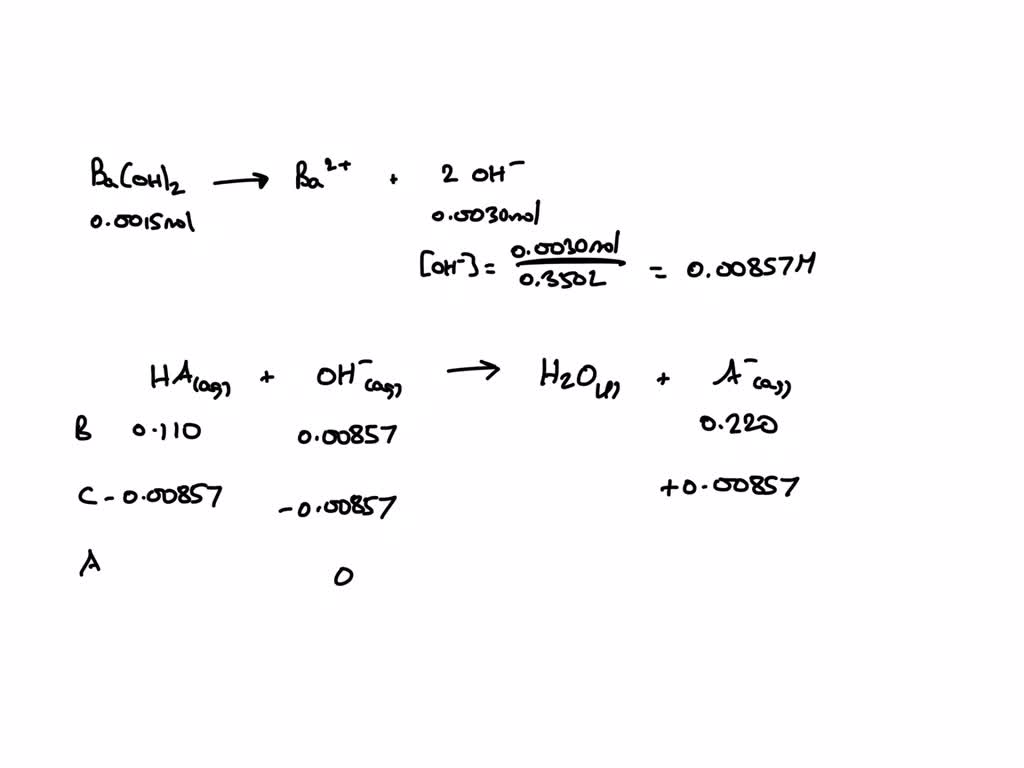 Ba(OH)2 → Ba2+ + 2 OH−
0.0015mol 0.0030mol
[OH−] = 0.0030mol / 0.350L = 0.00857M
HA(aq) + OH−(aq) → H2O(l) + A−(aq)
B 0.110 0.00857 0.220
C -0.00857 -0.00857 +0.00857
A 0